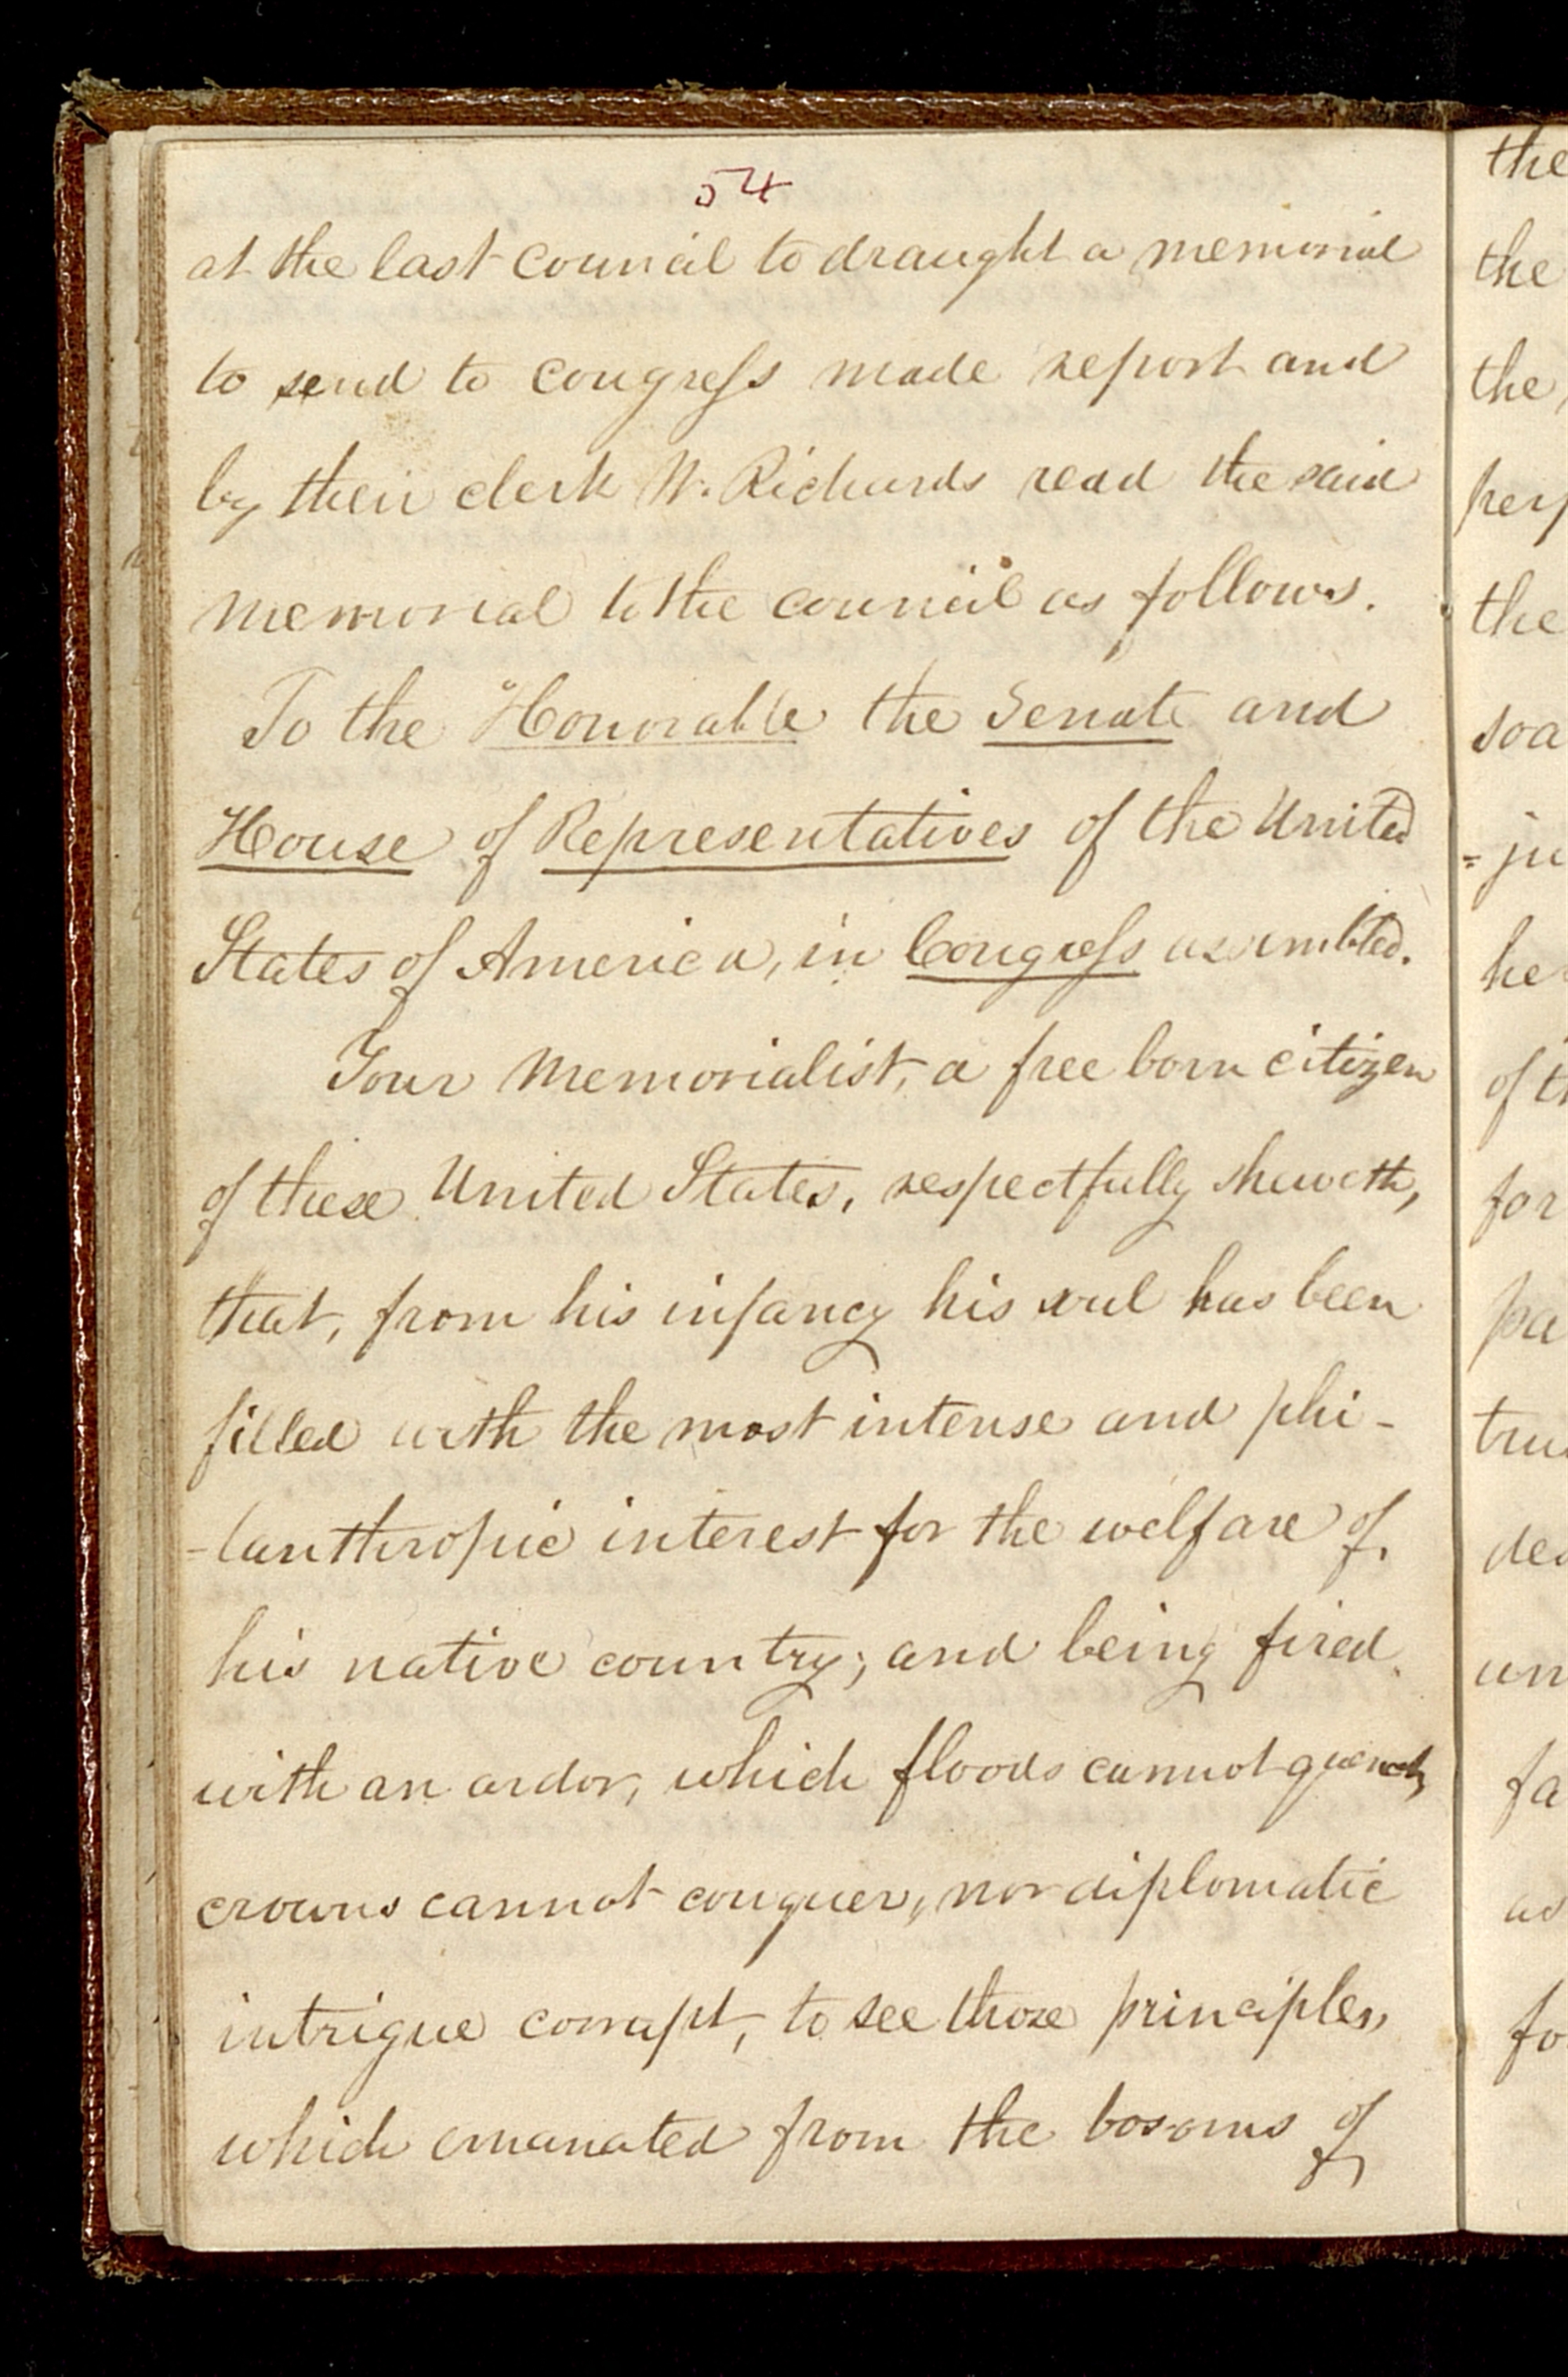 54
at the last council to draught a memorial
to send to congress made report and
by their clerk W. Richards read the said
memorial to the council as follows.
To the Honorable the Senate and
House of Representatives of the United
States of America, in Congress assembled.
Your Memorialist, a free born citizen
of these United States, respectfully sheweth,
that, from his infancy his soul has been
filled with the most intense and phi-
-lanthropic interest for the welfare of
his native country; and being fired
with an ardor, which floods cannot quench,
crowns cannot conquer, nor diplomatic
intrigue corrupt, to see those principles,
which emanated from the bosoms of
the
the
the,
the
soa
=ju
he
for
pa
un
fa
as
fo